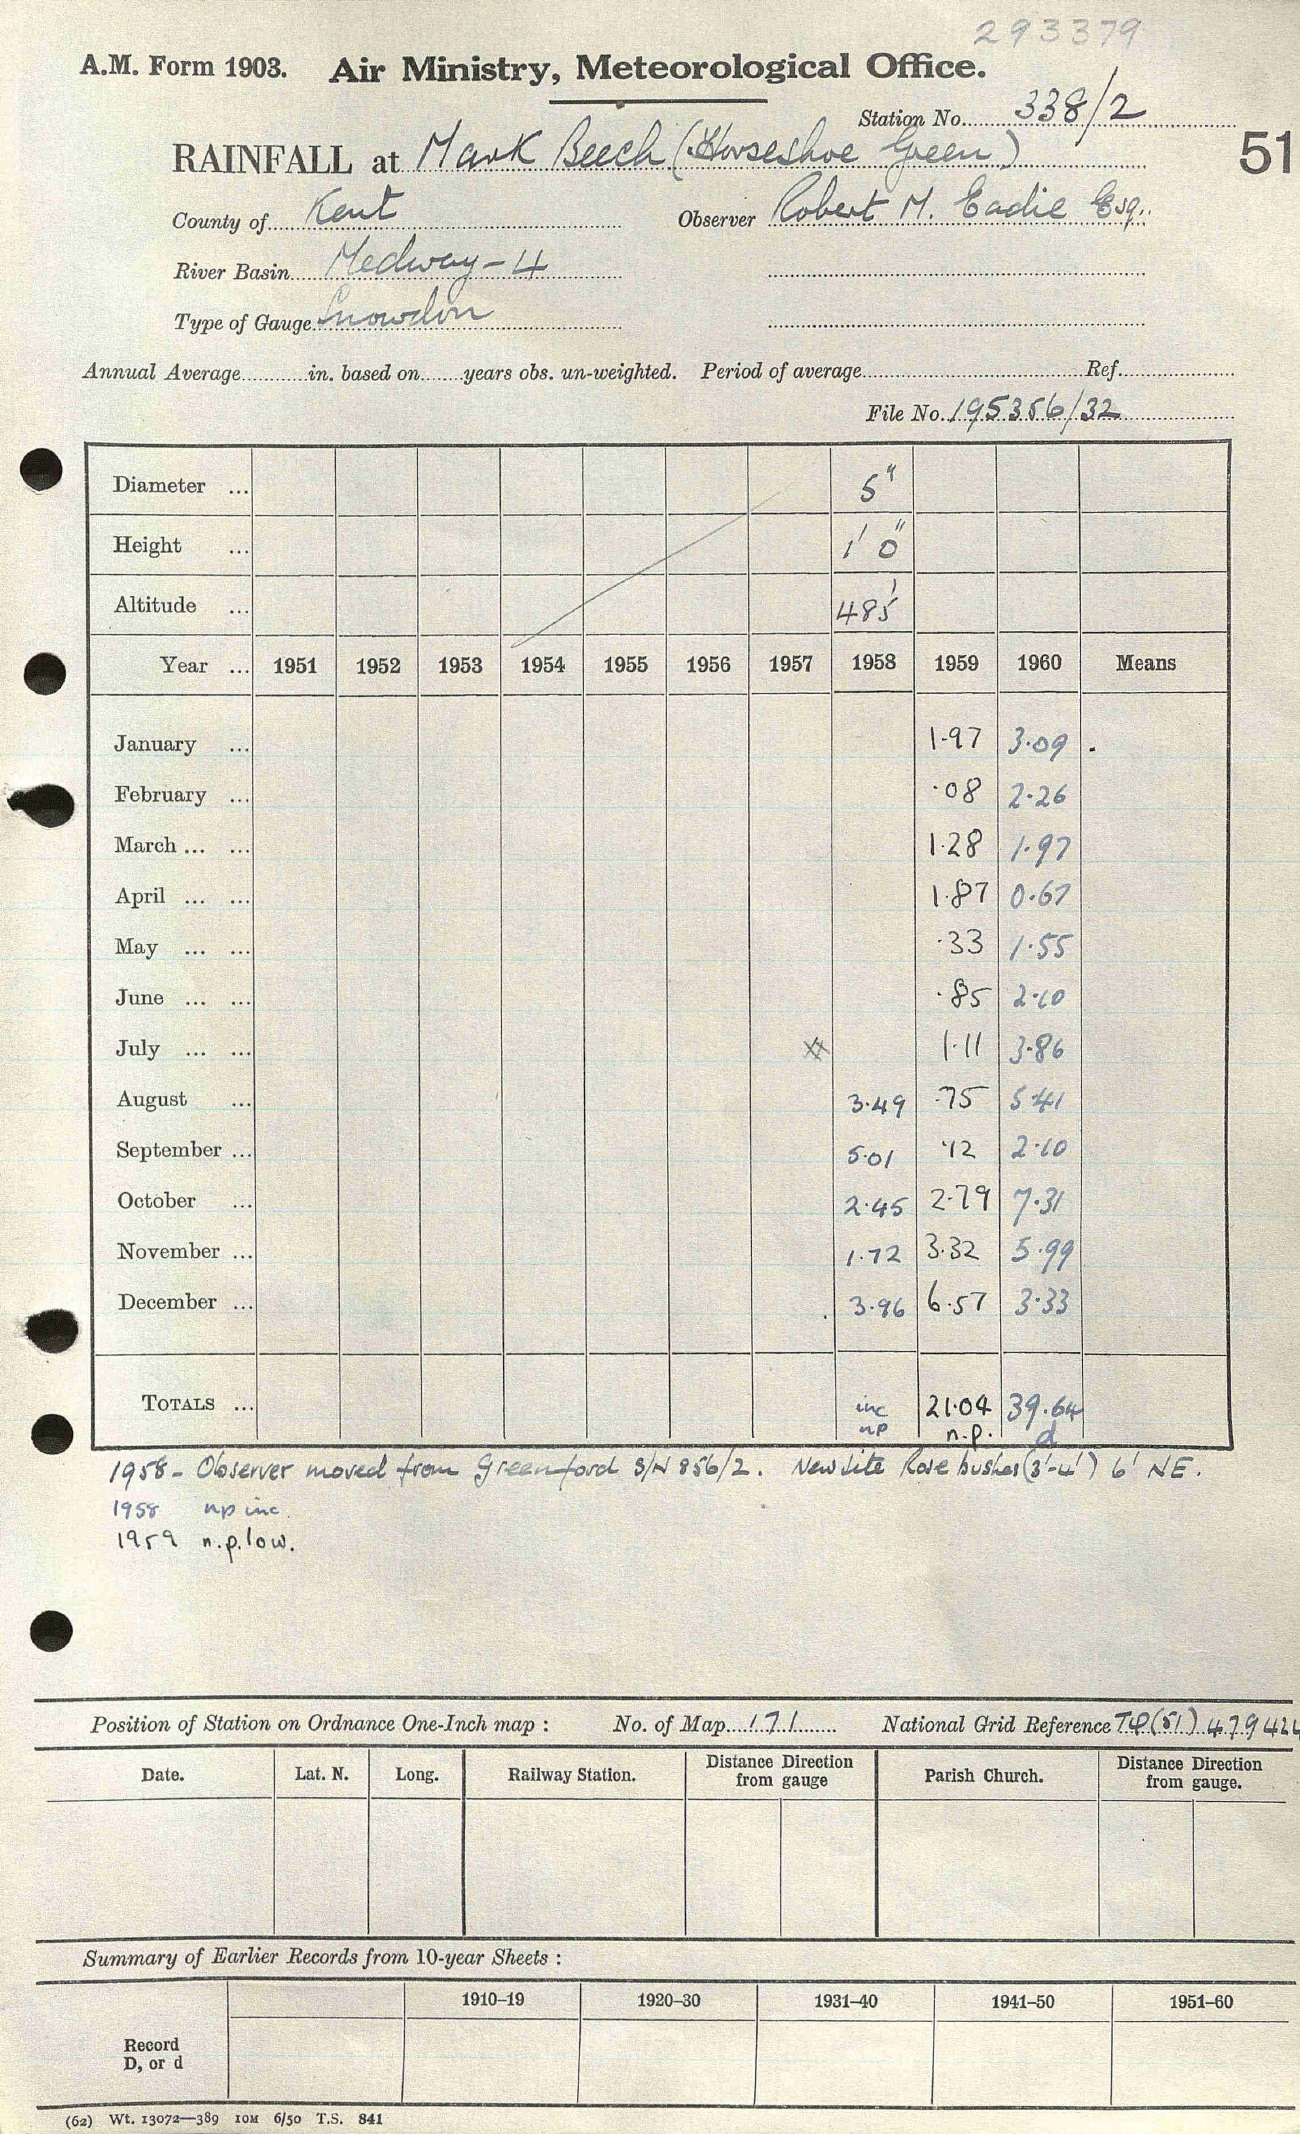 293379
A.M. Form 1903. Air Ministry, Meteorological Office.
Station No. 338/2
RAINFALL at Mark Beech (Horseshoe Green)
51
County of Kent Observer Robert M. Eadie Esq.
River Basin Medway-4
Type of Gauge Snowdon
Annual Average in. based on years obs. un-weighted. Period of average Ref.
File No. 195356/32
Diameter ... 5"
Height ... 1' 0"
Altitude ... 485'
Year ... 1951 1952 1953 1954 1955 1956 1957 1958 1959 1960 Means
January ... 1.97 3.09 .
February ... .08 2.26
March ... ... 1.28 1.97
April ... ... 1.87 0.67
May ... ... .33 1.55
June ... ... .85 2.10
July ... ... 1.11 3.86
August ... 3.49 .75 5.41
September ... 5.01 .12 2.10
October ... 2.45 2.79 7.31
November ... 1.72 3.32 5.99
December ... 3.96 6.57 3.33
TOTALS ... inc 21.04 39.64
np n.p. d
1958 - Observer moved from Greenford S/N 856/2. New site Rose bushes (3'-4') 6' NE.
1958 np inc.
1959 n.p. low.
Position of Station on Ordnance One-Inch map : No. of Map 171 National Grid Reference TQ(51) 479424
Date. Lat. N. Long. Railway Station. Distance Direction from gauge Parish Church. Distance Direction from gauge.
Summary of Earlier Records from 10-year Sheets :
1910–19 1920–30 1931–40 1941–50 1951–60
Record
D, or d
(62) Wt. 13072—389 10M 6/50 T.S. 841